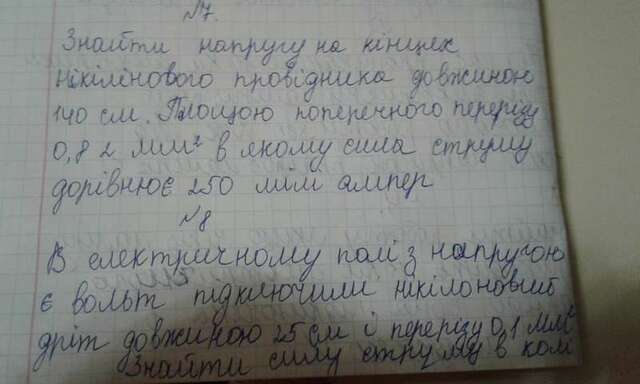 №7.
Знайти напругу на кінцях
нікілінового провідника довжиною
140 см. Площою поперечного перерізу
0,82 мм² в якому сила струму
дорівнює 250 мілі ампер
№8
В електричному полі з напругою
є вольт підключили нікілоновий
дріт довжиною 25 см і перерізу 0,1 мм²
Знайти силу струму в кол